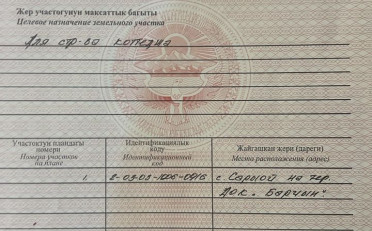 Жер участогунун максаттык багыты
Целевое назначение земельного участка
Для стр-ва коттеджа
Участоктун пландагы номери
Номера участков на плане
Идентификациялык коду
Идентификационный код
Жайгашкан жери (дареги)
Место расположения (адрес)
1. 2-03-02-1006-0416 с. Сарыой на тер.
Пок. "Барчын"